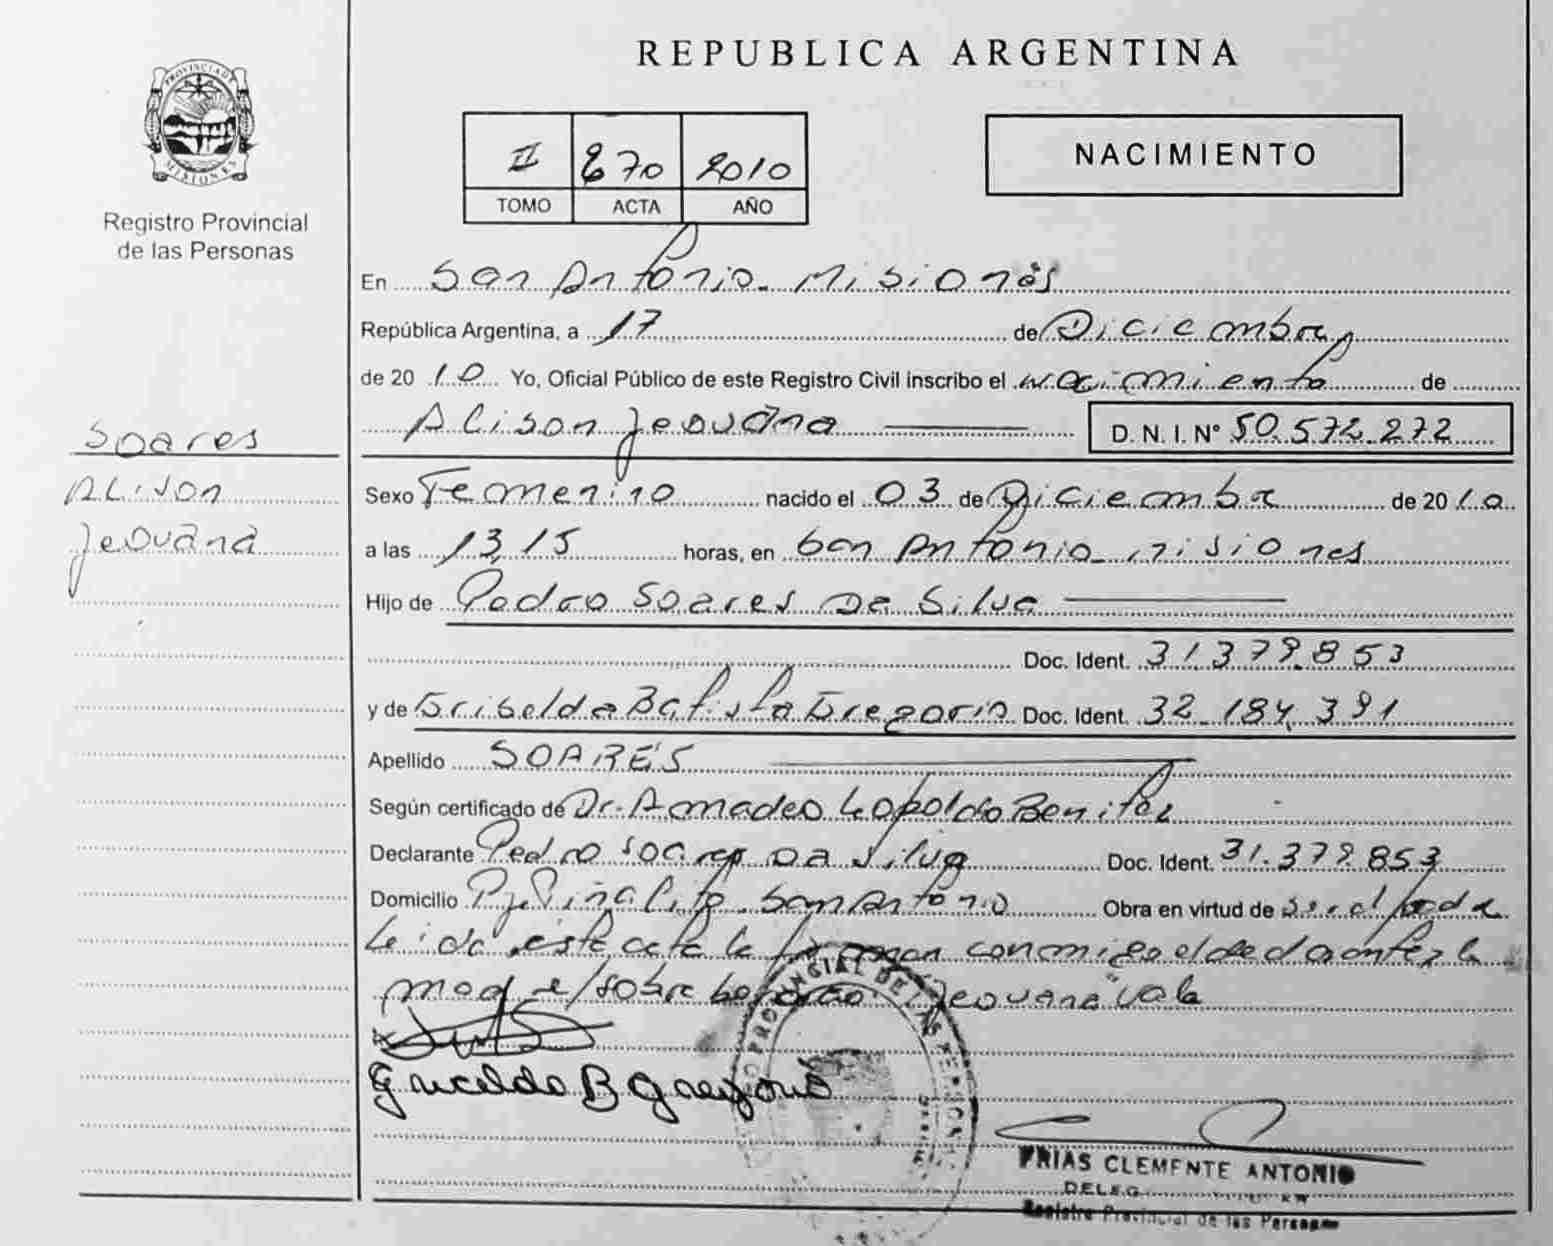 REPUBLICA ARGENTINA
PROVINCIA DE MISIONES
Registro Provincial
de las Personas
II 270 2010
TOMO ACTA AÑO
NACIMIENTO
En San Antonio - Misiones
República Argentina, a 17 de Diciembre
de 2010 Yo, Oficial Público de este Registro Civil inscribo el nacimiento de
Alison Jeovana D. N. I. Nº 50.572.272
Soares
Alison
Jeovana
Sexo Femenino nacido el 03 de Diciembre de 2010
a las 13,15 horas, en San Antonio - Misiones
Hijo de Pedro Soares Da Silva
Doc. Ident. 31.379.853
y de Griselda Batista Gregorio Doc. Ident. 32.184.391
Apellido SOARES
Según certificado de Dr. Amadeo Leopoldo Benitez
Declarante Pedro Soares Da Silva Doc. Ident. 31.379.853
Domicilio Piñalito San Antonio Obra en virtud de ser el padre
Leida este acta la firman conmigo el declarante y la
madre/sobre borrado: "Jeovana" Vale
Griselda B Gregorio
FRIAS CLEMENTE ANTONIO
Registro Provincial de las Personas